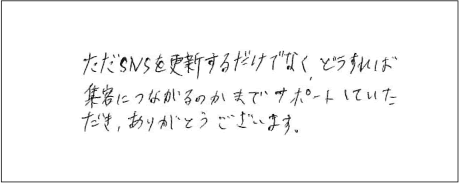 ただSNSを更新するだけでなく、どうすれば
集客につながるのかまでサポートしていた
だき、ありがとうございます。